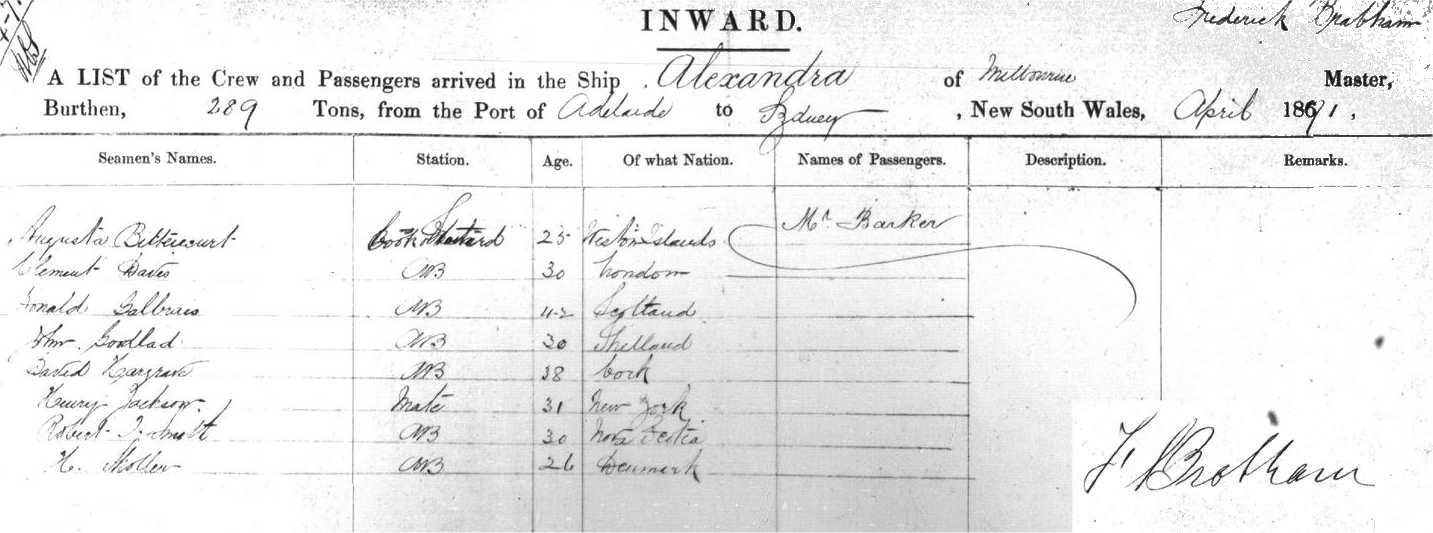 INWARD.
Frederick Brabham
A LIST of the Crew and Passengers arrived in the Ship Alexandra of Melbourne Master,
Burthen, 289 Tons, from the Port of Adelaide to Sydney, New South Wales, April 1891,
Seamen's Names. Station. Age. Of what Nation. Names of Passengers. Description. Remarks.
Augusta Bittecourt Cook & Steward 25 Western Islands Mr Barker
Clement Davis AB 30 London
Donald AB 42 Scotland
John Goodlad AB 30 Shetland
David Hargrave AB 38 Cork
Henry Jackson Mate 31 New York
Robert AB 30 Nova Scotia
H. Moller AB 26 Denmark
F Brabham